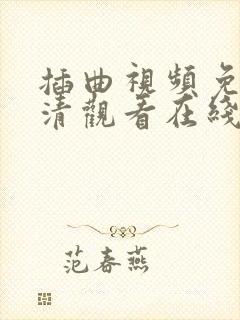 插曲視頻免
清觀看在綫
范春燕